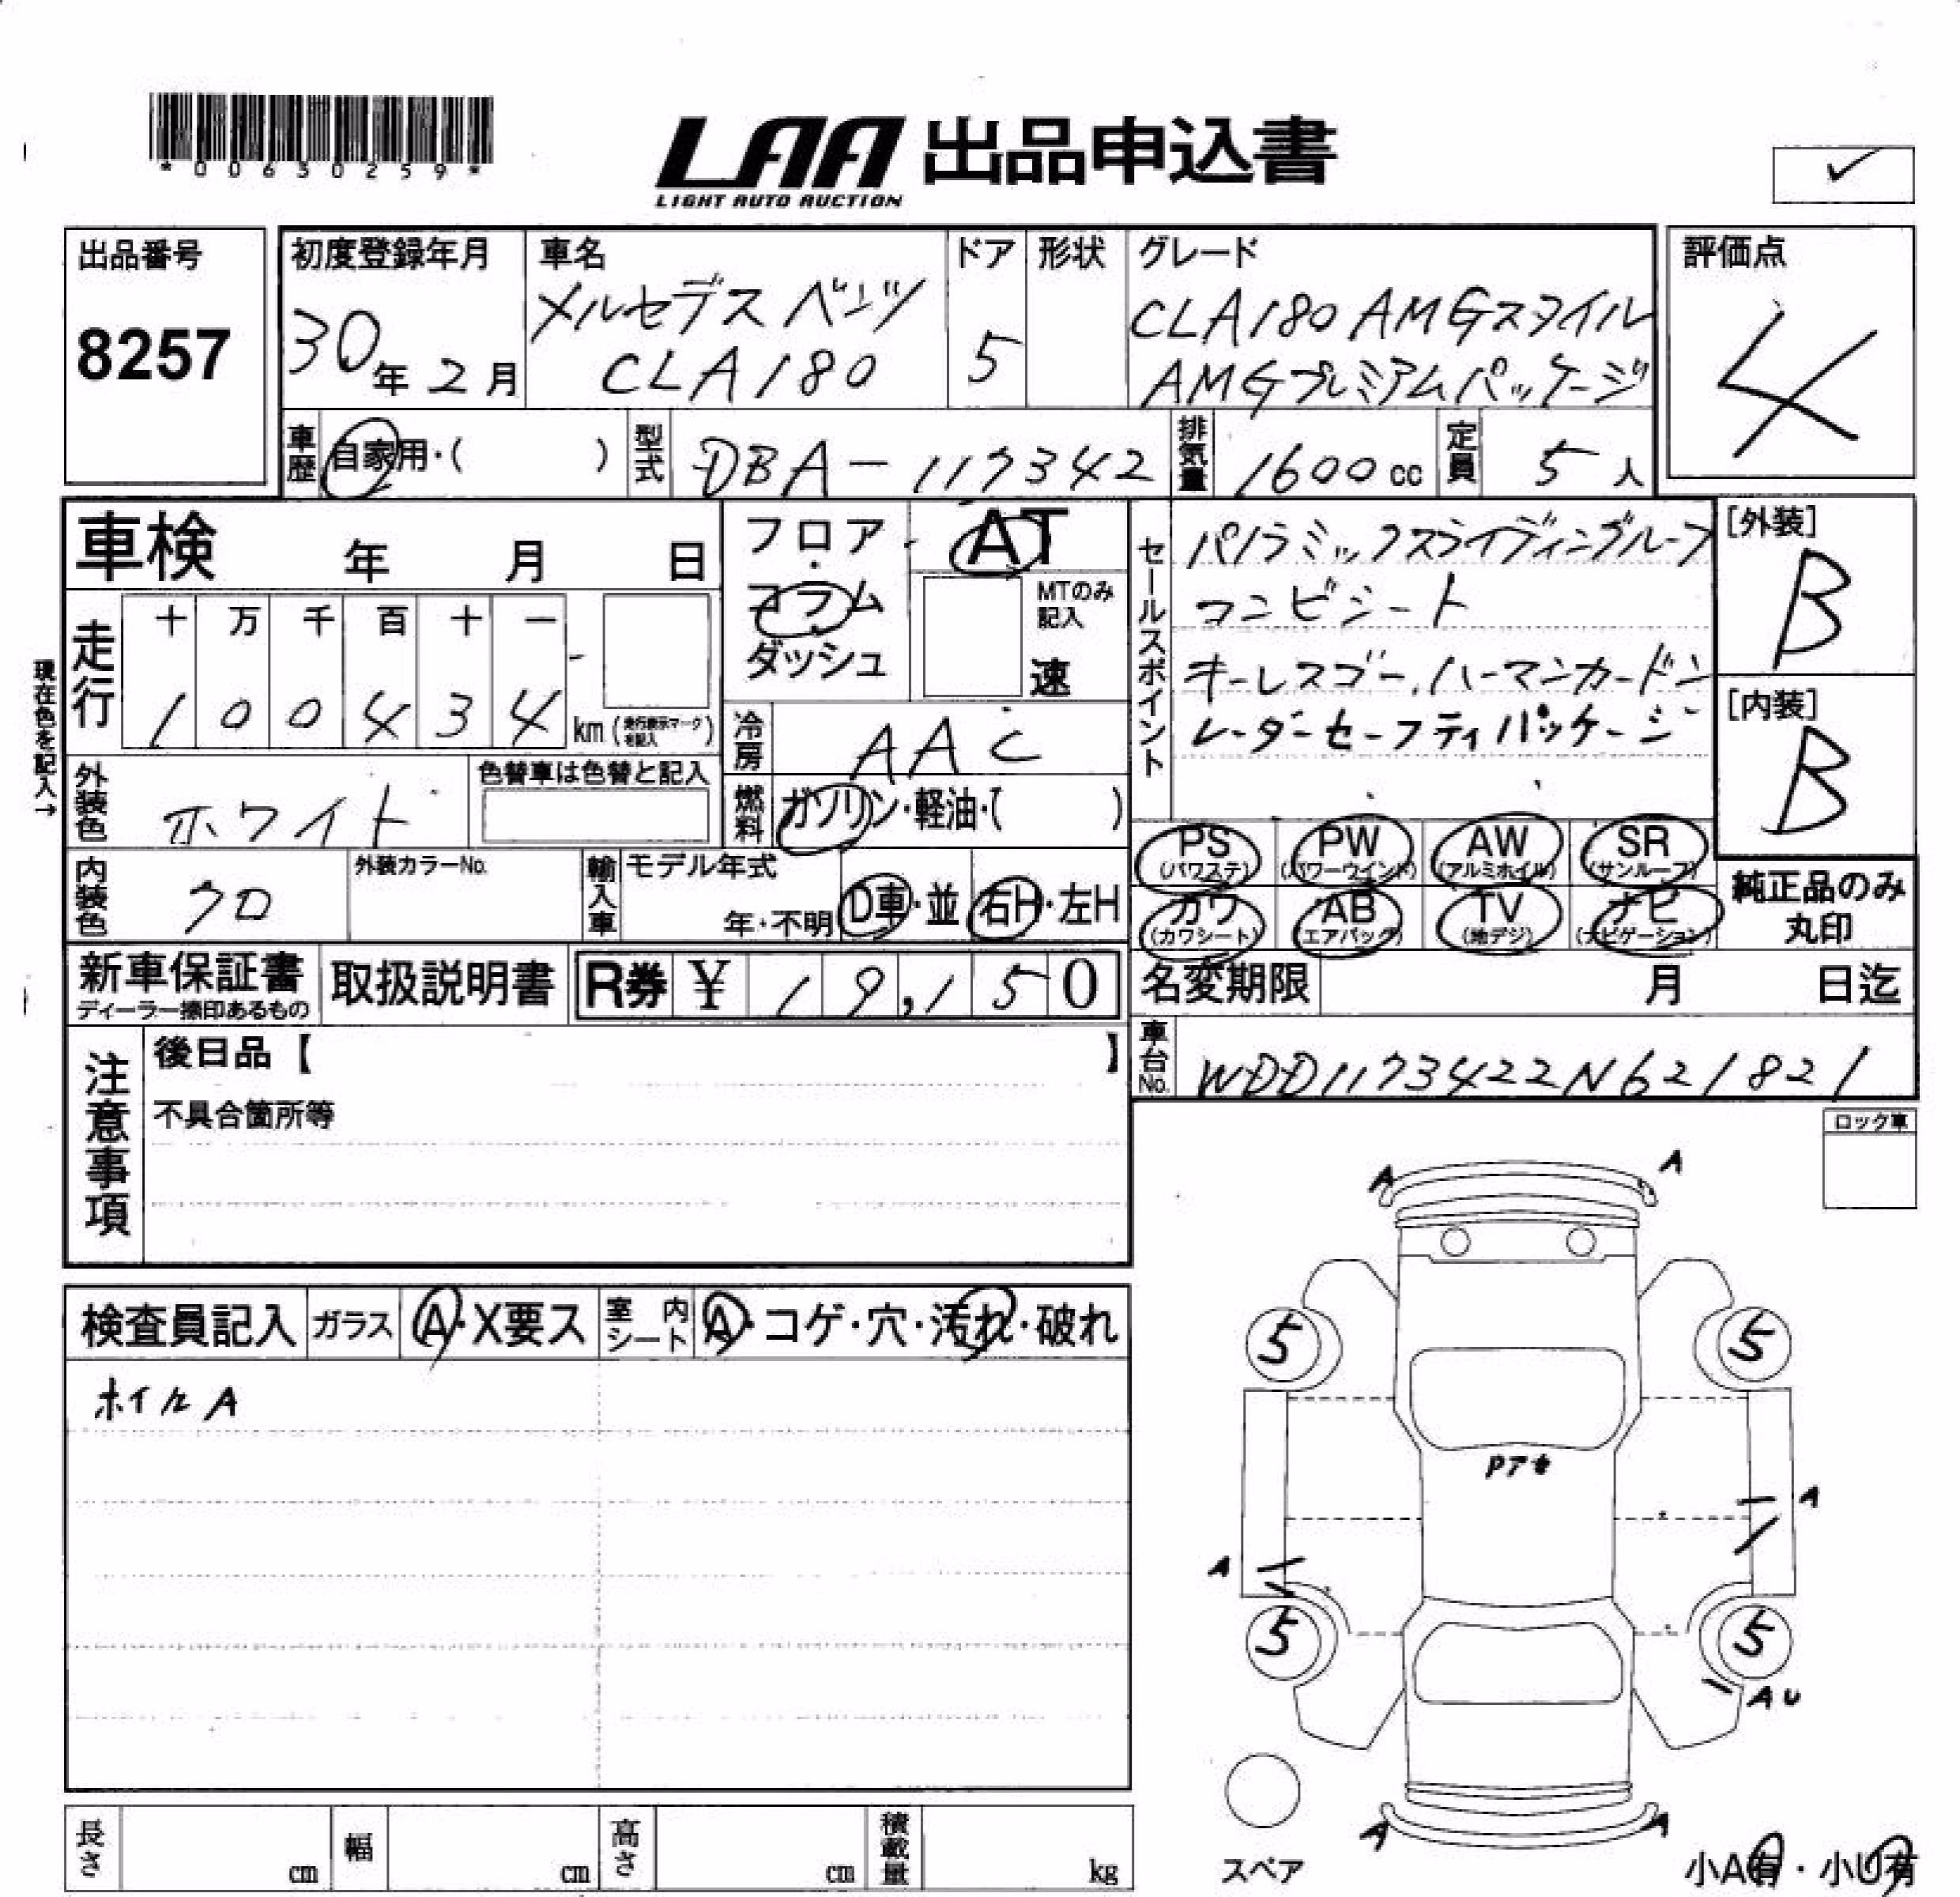 *00630259*
LAA 出品申込書
LIGHT AUTO AUCTION
✓
出品番号
8257
初度登録年月
30年2月
車名
メルセデスベンツ
CLA180
ドア
5
形状
グレード
CLA180 AMGスタイル
AMGプレミアムパッケージ
評価点
4
車歴
自家用・( )
型式
DBA-117342
排気量
1600cc
定員
5人
車検 年 月 日
フロア・コラム・ダッシュ
AT
MTのみ記入
速
セールスポイント
パノラミックスライディングルーフ
コンビシート
キーレスゴー、ハーマンカードン
レーダーセーフティパッケージ
[外装]
B
[内装]
B
現在色を記入→
走行
十 万 千 百 十 一
1 0 0 4 3 4 km (走行表示マークを記入)
冷房
AAC
外装色
ホワイト
色替車は色替と記入
燃料
ガソリン・軽油・( )
PS (パワステ) PW (パワーウインド) AW (アルミホイル) SR (サンルーフ)
カワ (カワシート) AB (エアバッグ) TV (地デジ) ナビ (ナビゲーション)
純正品のみ
丸印
内装色
クロ
外装カラーNo.
輸入車
モデル年式
年・不明
D車・並
右H・左H
新車保証書
ディーラー捺印あるもの
取扱説明書
R券 ¥ 19,150
名変期限 月 日迄
車台No.
WDD1173422N621821
注意事項
後日品【 】
不具合箇所等
ロック車
検査員記入
ガラス
A・X要ス
室内シート
A・コゲ・穴・汚れ・破れ
ホイルA
A A
5 5
Pアキ
A
A
5 5
AU
A A
スペア
小A有・小U有
長さ cm
幅 cm
高さ cm
積載量 kg